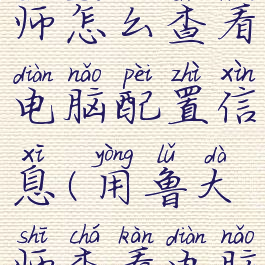 师怎么查看
diàn nǎo pèi zhì xìn
电脑配置信
xī yòng lǔ dà
息(用鲁大
shī chá kàn diàn nǎo
师查看电脑